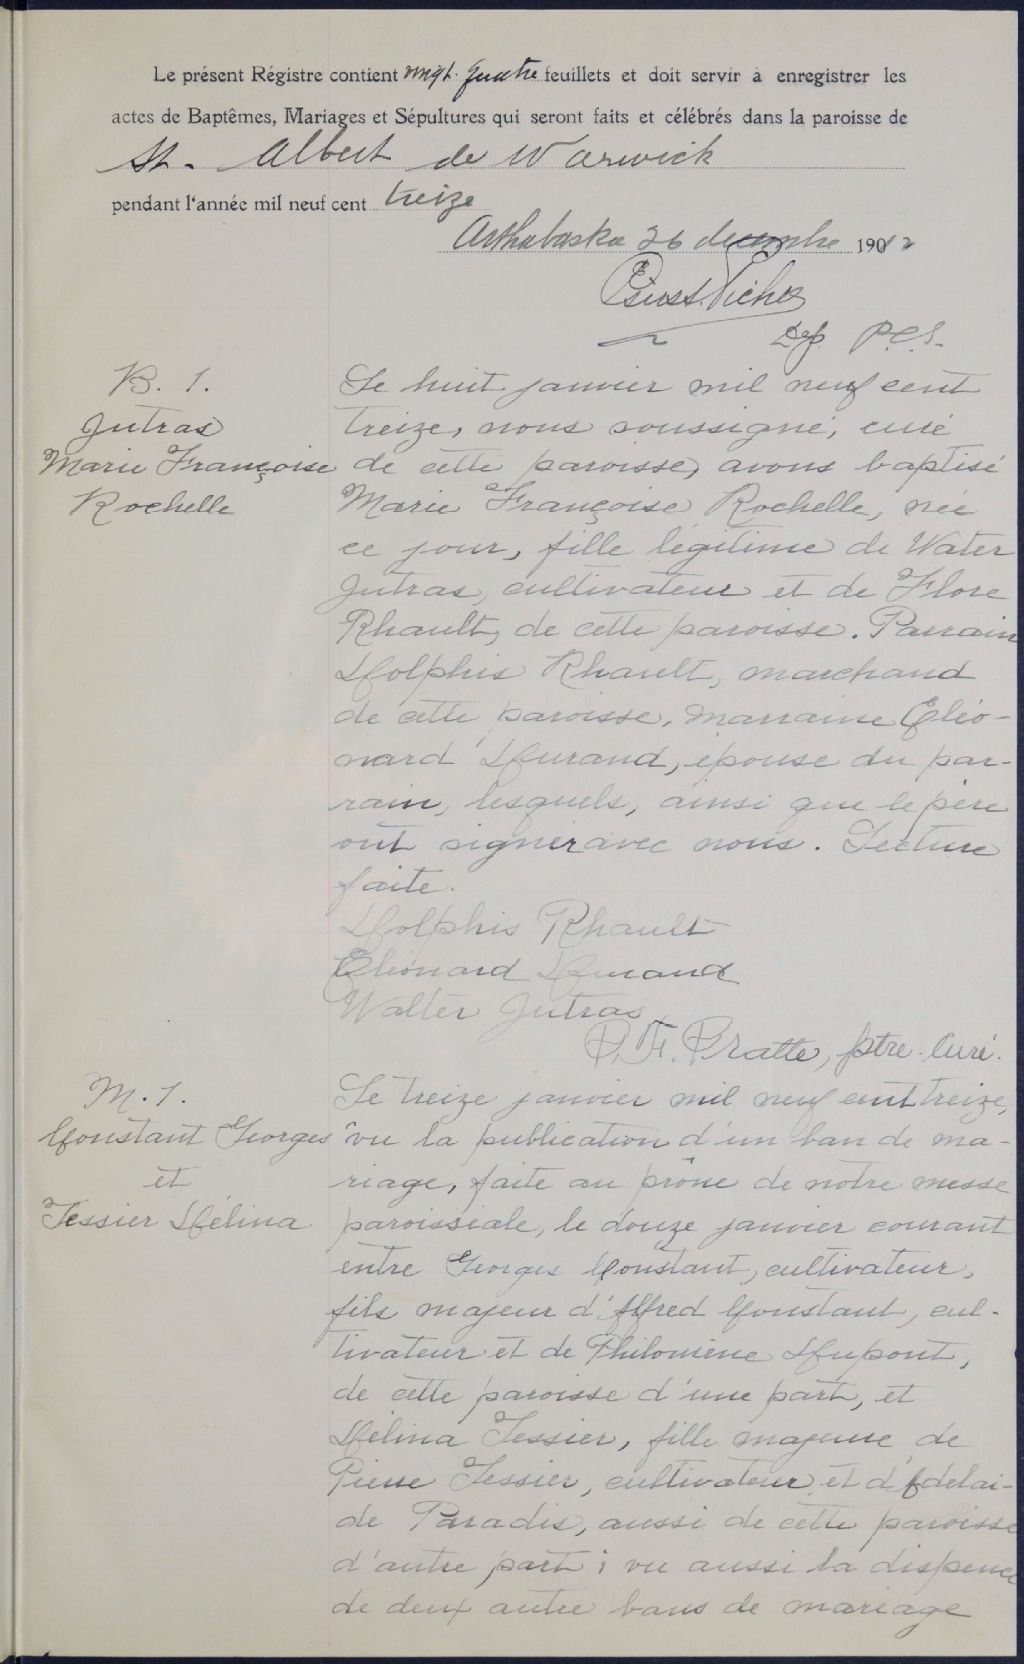 Le présent Régistre contient vingt-quatre feuillets et doit servir à enregistrer les
actes de Baptêmes, Mariages et Sépultures qui seront faits et célébrés dans la paroisse de
St. Albert de Warwick
pendant l'année mil neuf cent treize
Arthabaska 26 decembre 1912
Dep. P.C.S.
B. 1.
Jutras
Marie Françoise
Rochelle
Le huit janvier mil neuf cent
treize, nous soussigné, curé
de cette paroisse, avons baptisé
Marie Françoise Rochelle, née
ce jour, fille légitime de Water
Jutras, cultivateur et de Flore
Rhault, de cette paroisse. Parrain
Dolphis Rhault, marchand
de cette paroisse, marraine Eléo-
nard Durand, épouse du par-
rain, lesquels, ainsi que le père
ont signer avec nous. Lecture
faite.
Dolphis Rhault
Eléonard Durand
Walter Jutras
P. F. Pratte, ptre. Curé.
M. 1.
Constant Georges
et
Tessier Délina
Le treize janvier mil neuf cent treize,
vu la publication d'un ban de ma-
riage, faite au prône de notre messe
paroissiale, le douze janvier courant
entre Georges Constant, cultivateur,
fils majeur d'Alfred Constant, cul-
tivateur et de Philomène Dupont,
de cette paroisse d'une part, et
Délina Tessier, fille majeure de
Pierre Tessier, cultivateur et d'Adelai-
de Paradis, aussi de cette paroisse
d'autre part; vu aussi la dispence
de deux autre bans de mariage